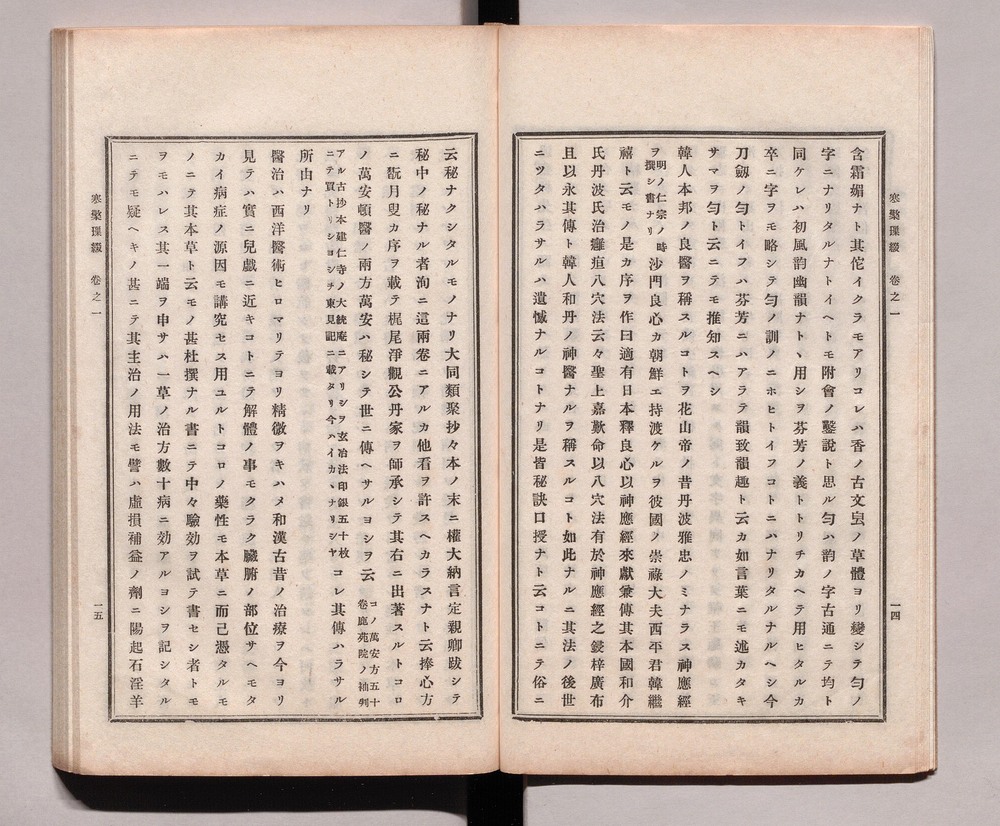 寒檠璅綴　卷之一
一四
含霜媚ナト其佗イクラモアリコレハ香ノ古文㿝ノ草體ヨリ變シテ匂ノ
字ニナリタルナトイヘトモ附會ノ鑿說ト思ル匂ハ韵ノ字古通ニテ均ト
同ケレハ初風韵幽韻ナトヽ用シヲ芬芳ノ義トトリチカヘテ用ヒタルカ
卒ニ字ヲモ略シテ匂ノ訓ノニホヒトイフコトニハナリタルナルヘシ今
刀劔ノ匂トイフハ芬芳ニハアラテ韻致韻趣ト云カ如言葉ニモ述カタキ
サマヲ匂ト云ニテモ推知スヘシ
韓人本邦ノ良醫ヲ稱スルコトヲ花山帝ノ昔丹波雅忠ノミナラス神應經
ヲ明ノ仁宗ノ時撰シ書ナリ沙門良心カ朝鮮エ持渡ケルヲ彼國ノ崇祿大夫西平君韓繼
禧ト云モノ是カ序ヲ作曰適有日本釋良心以神應經來獻兼傳其本國和介
氏丹波氏治癰疽八穴法云々聖上嘉歎命以八穴法有於神應經之鋟梓廣布
且以永其傳ト韓人和丹ノ神醫ナルヲ稱スルコト如此ナルニ其法ノ後世
ニツタハラサルハ遺憾ナルコトナリ是皆秘訣口授ナト云コトニテ俗ニ
云秘ナクシタルモノナリ大同類聚抄々本ノ末ニ權大納言定親卿跋シテ
秘中ノ秘ナル者洵ニ這兩卷ニアルカ他看ヲ許スヘカラスナト云捧心方
ニ翫月叟カ序ヲ載テ梶尾淨觀公丹家ヲ師承シテ其右ニ出著スルトコロ
ノ萬安頓醫ノ兩方萬安ハ秘シテ世ニ傳ヘサルヨシヲ云コノ萬安方五十卷鹿苑院ノ袖判
アル古抄本建仁寺ノ大統庵ニアリシヲ玄冶法印銀五十枚ニテ買トリシヨシヲ東見記ニ載タリ今ハイカヽナリシヤコレ其傳ハラサル
所由ナリ
醫治ハ西洋醫術ヒロマリテヨリ精微ヲキハメ和漢古昔ノ治療ヲ今ヨリ
見テハ實ニ兒戲ニ近キコトニテ解體ノ事モクラク臟腑ノ部位サヘモタ
カイ病症ノ源因モ講究セス用ユルトコロノ藥性モ本草ニ而已憑タルモ
ノニテ其本草ト云モノ甚杜撰ナル書ニテ中々驗効ヲ試テ書セシ者トモ
ヲモハレス其一端ヲ申サハ一草ノ治方數十病ニ効アルヨシヲ記シタル
ニテモ疑ヘキノ甚ニテ其主治ノ用法モ譬ハ虛損補益ノ劑ニ陽起石淫羊
寒檠璅綴　卷之一
一五